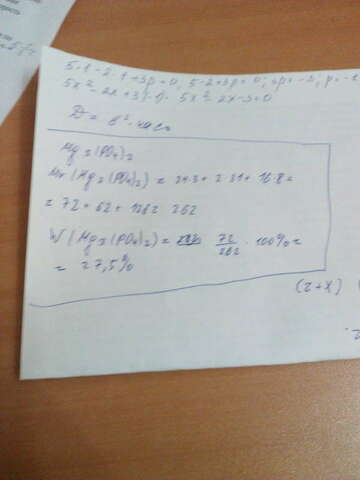 5·1-2·1+3p=0; 5-2+3p=0; 3p=-3; p=-1
5x²-2x+3(-1) 5x²-2x-3=0
D = b²-4ac
Mg3(PO4)2
Mr(Mg3(PO4)2) = 24·3+2·31+16·8=
= 72+62+128= 262
W(Mg3(PO4)2) = 72/262 · 100% =
= 27,5%
(2+x)